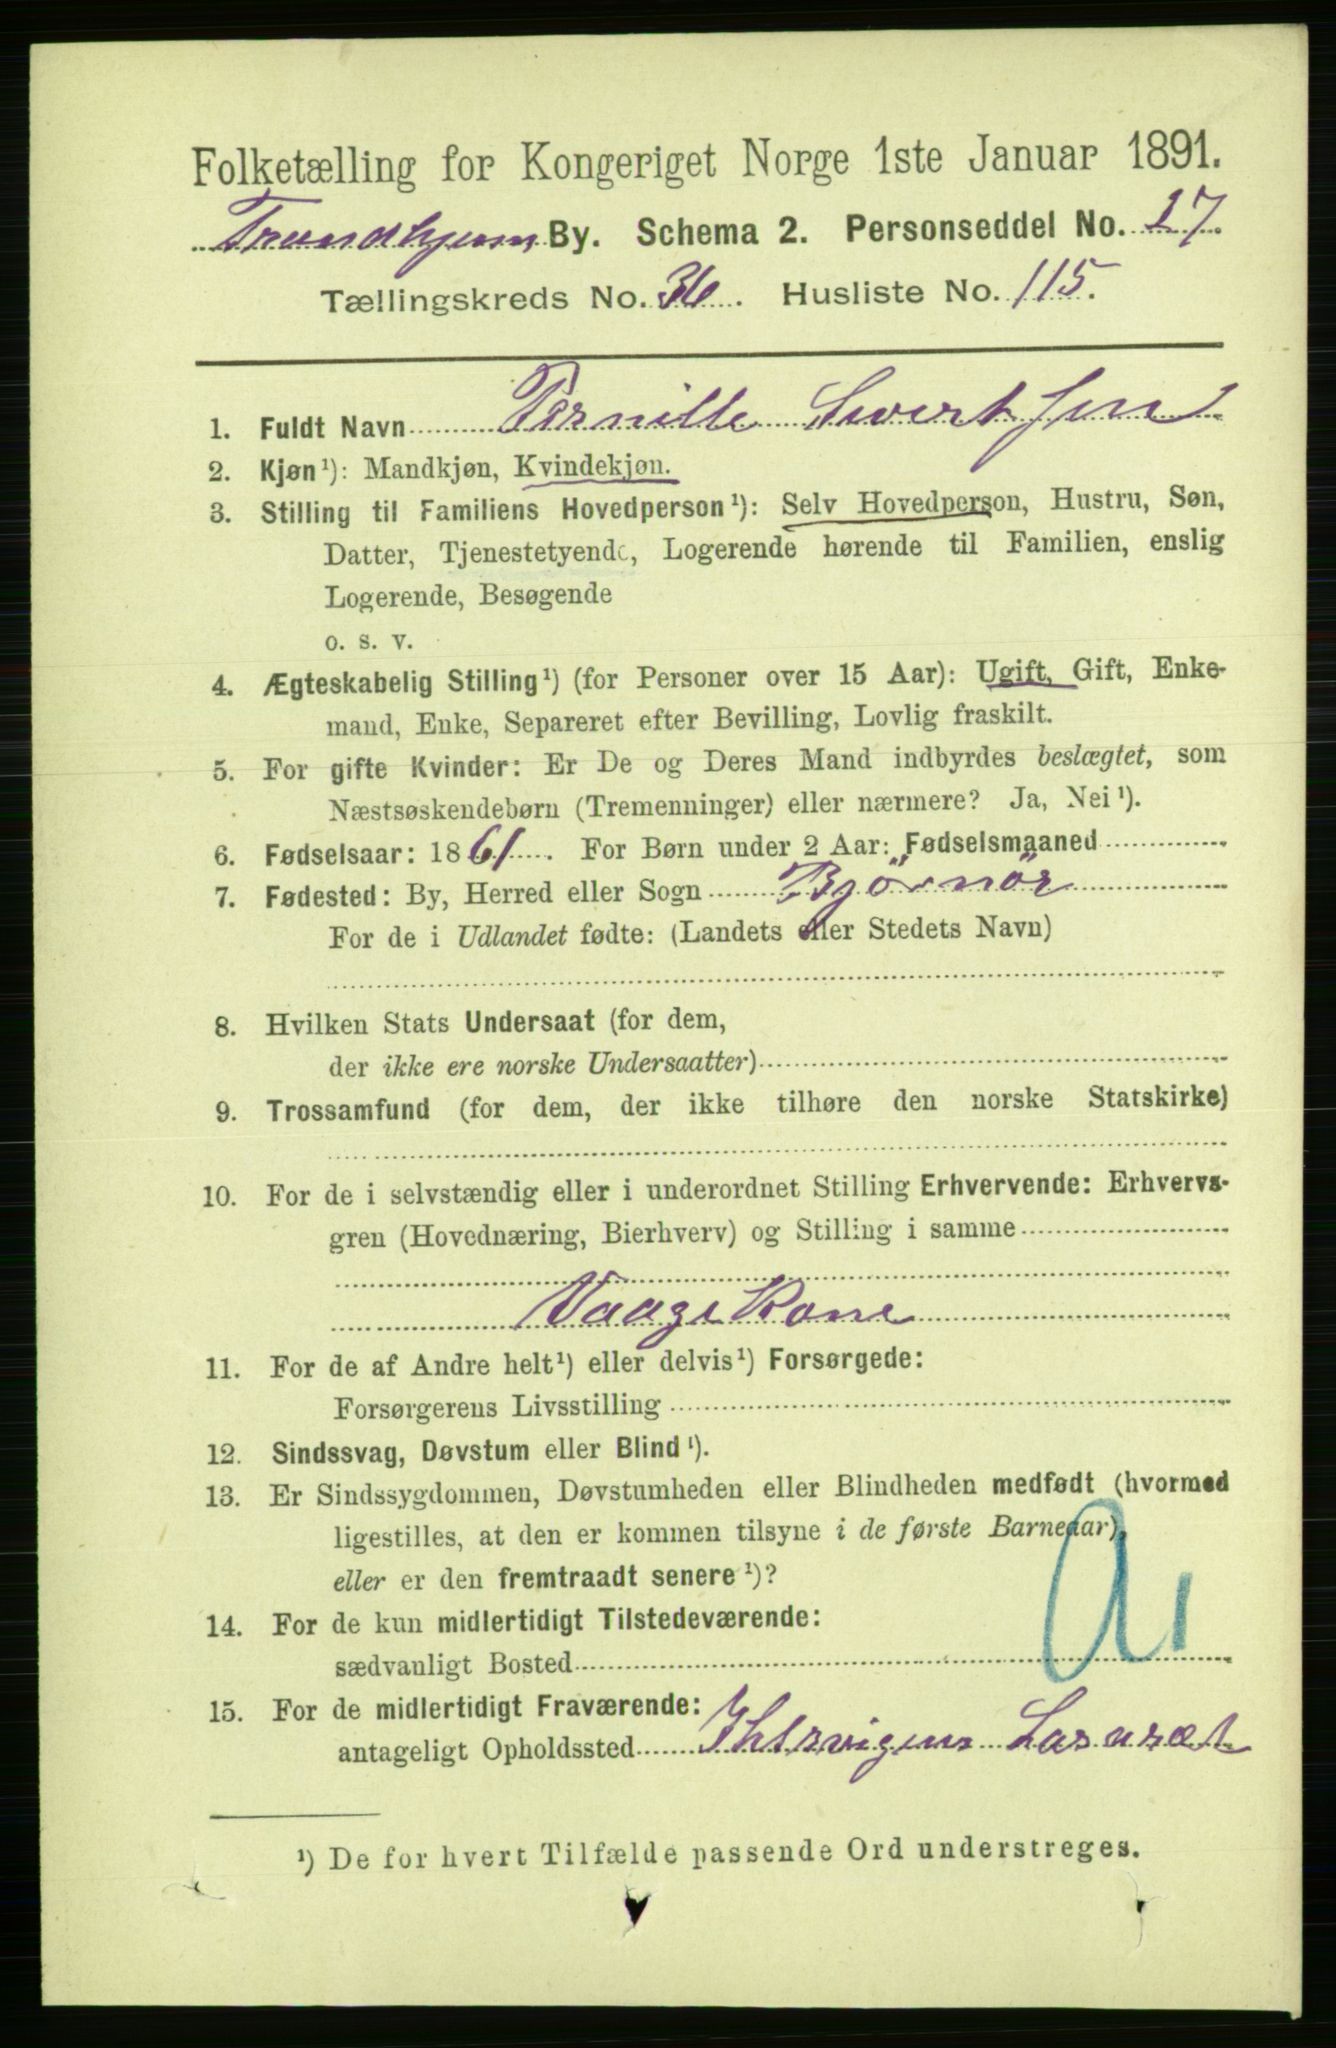 Folketælling for Kongeriget Norge 1ste Januar 1891.
Trondhjem By. Schema 2. Personseddel No. 27.
Tællingskreds No. 36. Husliste No. 115.
1. Fuldt Navn Pernille Sivertsen
2. Kjøn¹): Mandkjøn, Kvindekjøn.
3. Stilling til Familiens Hovedperson¹): Selv Hovedperson, Hustru, Søn,
Datter, Tjenestetyende, Logerende hørende til Familien, enslig
Logerende, Besøgende
o. s. v.
4. Ægteskabelig Stilling¹) (for Personer over 15 Aar): Ugift, Gift, Enke-
mand, Enke, Separeret efter Bevilling, Lovlig fraskilt.
5. For gifte Kvinder: Er De og Deres Mand indbyrdes beslægtet, som
Næstsøskendebørn (Tremenninger) eller nærmere? Ja, Nei¹).
6. Fødselsaar: 1861. For Børn under 2 Aar: Fødselsmaaned
7. Fødested: By, Herred eller Sogn Björnör
For de i Udlandet fødte: (Landets eller Stedets Navn)
8. Hvilken Stats Undersaat (for dem,
der ikke ere norske Undersaatter)
9. Trossamfund (for dem, der ikke tilhøre den norske Statskirke)
10. For de i selvstændig eller i underordnet Stilling Erhvervende: Erhvervs-
gren (Hovednæring, Bierhverv) og Stilling i samme
Vaage Kone
11. For de af Andre helt¹) eller delvis¹) Forsørgede:
Forsørgerens Livsstilling
12. Sindssvag, Døvstum eller Blind¹).
13. Er Sindssygdommen, Døvstumheden eller Blindheden medfødt (hvormed
ligestilles, at den er kommen tilsyne i de første Barneaar),
eller er den fremtraadt senere¹)?
14. For de kun midlertidigt Tilstedeværende:
sædvanligt Bosted
15. For de midlertidigt Fraværende:
antageligt Opholdssted Ihlevigens Lasaret
¹) De for hvert Tilfælde passende Ord understreges.